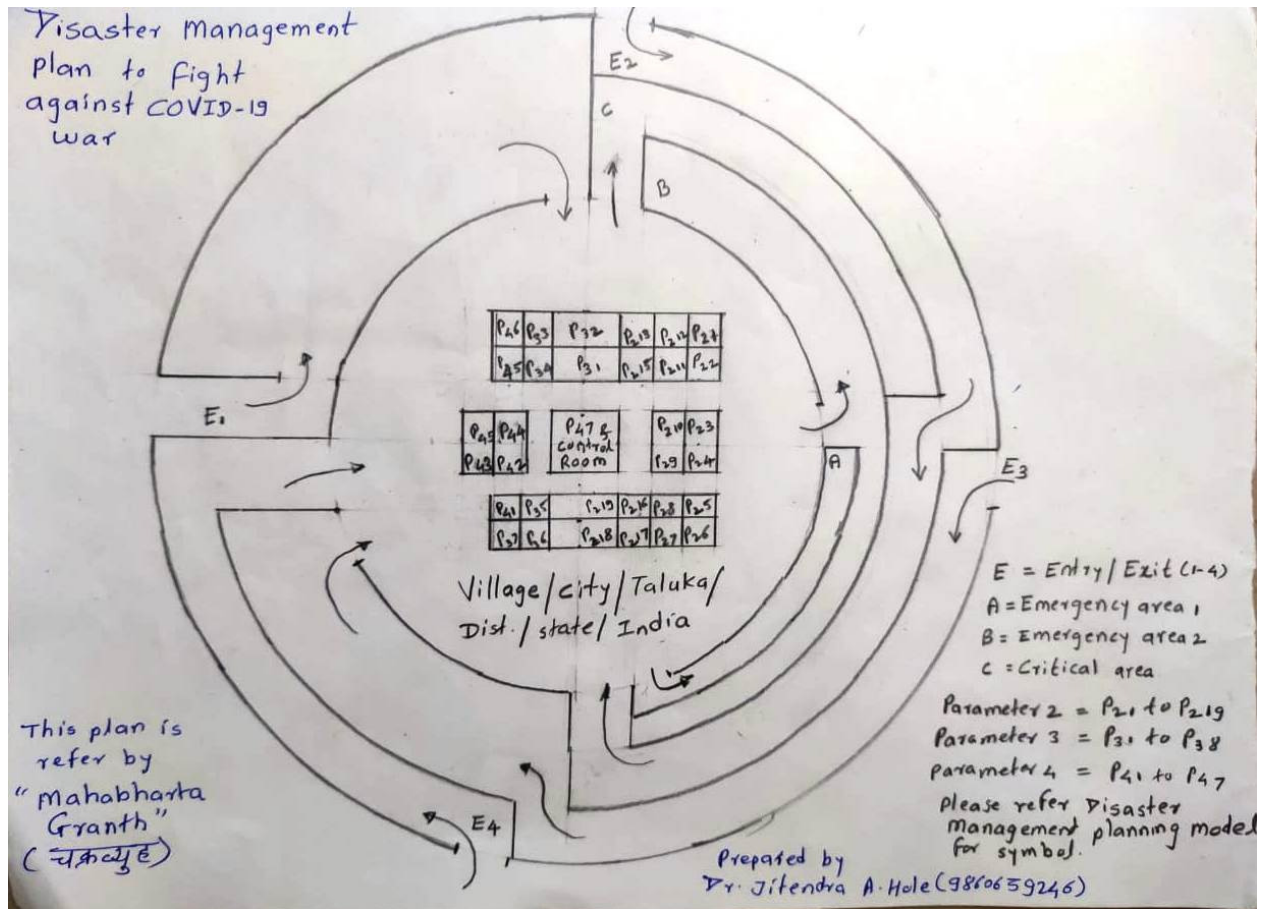 Disaster Management
plan to fight
against COVID-19
war
E2
C
B
P46 P33 P32 P213 P212 P27
P45 P34 P31 P215 P211 P22
E1
P45 P44 P47 & P210 P23
control
P43 P42 Room P29 P24
A
E3
P41 P35 P219 P216 P28 P25
P37 P36 P218 P217 P27 P26
Village/city/Taluka/
Dist./state/India
E = Entry/Exit (1-4)
A = Emergency area 1
B = Emergency area 2
C = Critical area
Parameter 2 = P21 to P219
Parameter 3 = P31 to P38
Parameter 4 = P41 to P47
please refer Disaster
management planning model
for symbol.
This plan is
refer by
"Mahabharta
Granth"
(चक्रव्युह)
E4
Prepared by
Dr. Jitendra A. Hole (9860659246)